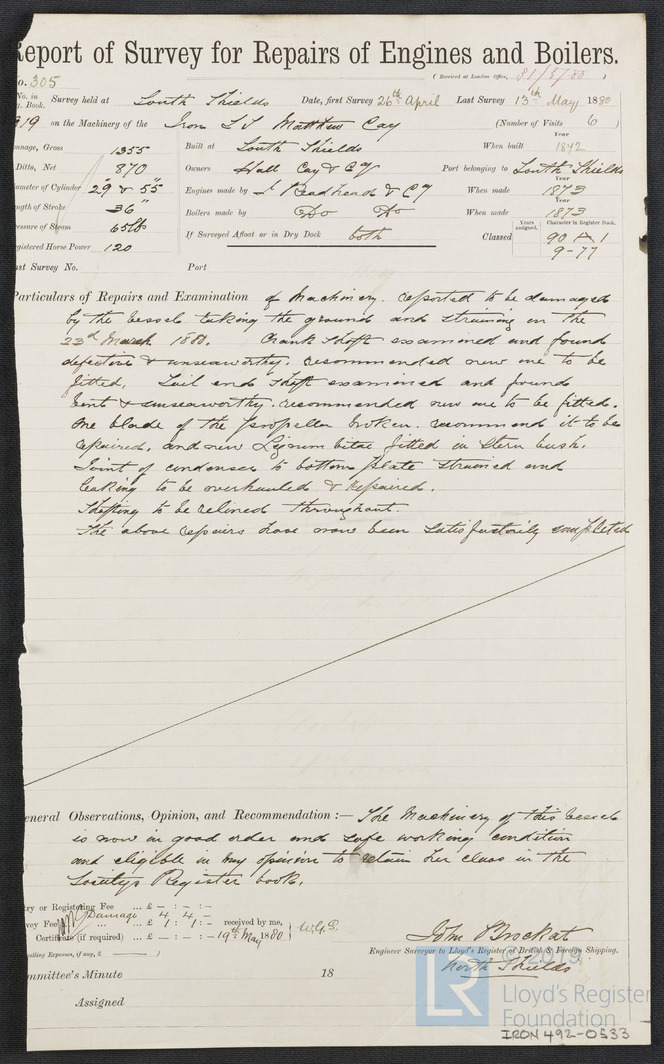 Report of Survey for Repairs of Engines and Boilers.
No. 305 (Received at London Office, 21/5/80)
No. in Reg. Book. Survey held at South Shields Date, first Survey 26th April Last Survey 13th May 1880
319 on the Machinery of the Iron S.S. Matthew Cay (Number of Visits 6)
Tonnage, Gross 1355 Built at South Shields When built Year 1872
Ditto, Net 870 Owners Hall Cay & Cy Port belonging to South Shields
Diameter of Cylinder 29" & 55" Engines made by J. Readhead & Cy When made Year 1873
Length of Stroke 36" Boilers made by Do Do When made Year 1873
Pressure of Steam 65 lbs If Surveyed Afloat or in Dry Dock both Classed Years assigned. Character in Register Book. 90 A 1
Registered Horse Power 120 9-77
Last Survey No. Port
Particulars of Repairs and Examination of Machinery. reported to be damaged
by the vessel taking the ground and straining on the
23rd March 1880. Crank shaft examined and found
defective & unseaworthy. recommended new one to be
fitted. Tail end shaft examined and found
bent & unseaworthy. recommended new one to be fitted.
One blade of the propeller broken. recommend it to be
repaired. and new Lignum vitae fitted in stern bush.
Joint of condenser to bottom plate strained and
leaking to be overhauled & repaired.
Shafting to be relined throughout.
The above repairs have now been satisfactorily completed
General Observations, Opinion, and Recommendation :— The Machinery of this vessel
is now in good order and safe working condition
and eligible in my opinion to retain her class in the
Societys Register book.
Entry or Registering Fee ... £ — : — : —
Damage 4 : 4 : —
Survey Fee ... £ 1 : 1 : — received by me,
Certificate (if required) ... £ — : — : — 19th May 1880
(Travelling Expenses, if any, £ )
John Brockat
Engineer Surveyor to Lloyd's Register of British & Foreign Shipping.
North Shields
Committee's Minute 18
Assigned
LR
© 2019
Lloyd's Register
Foundation
IRON 492-0533